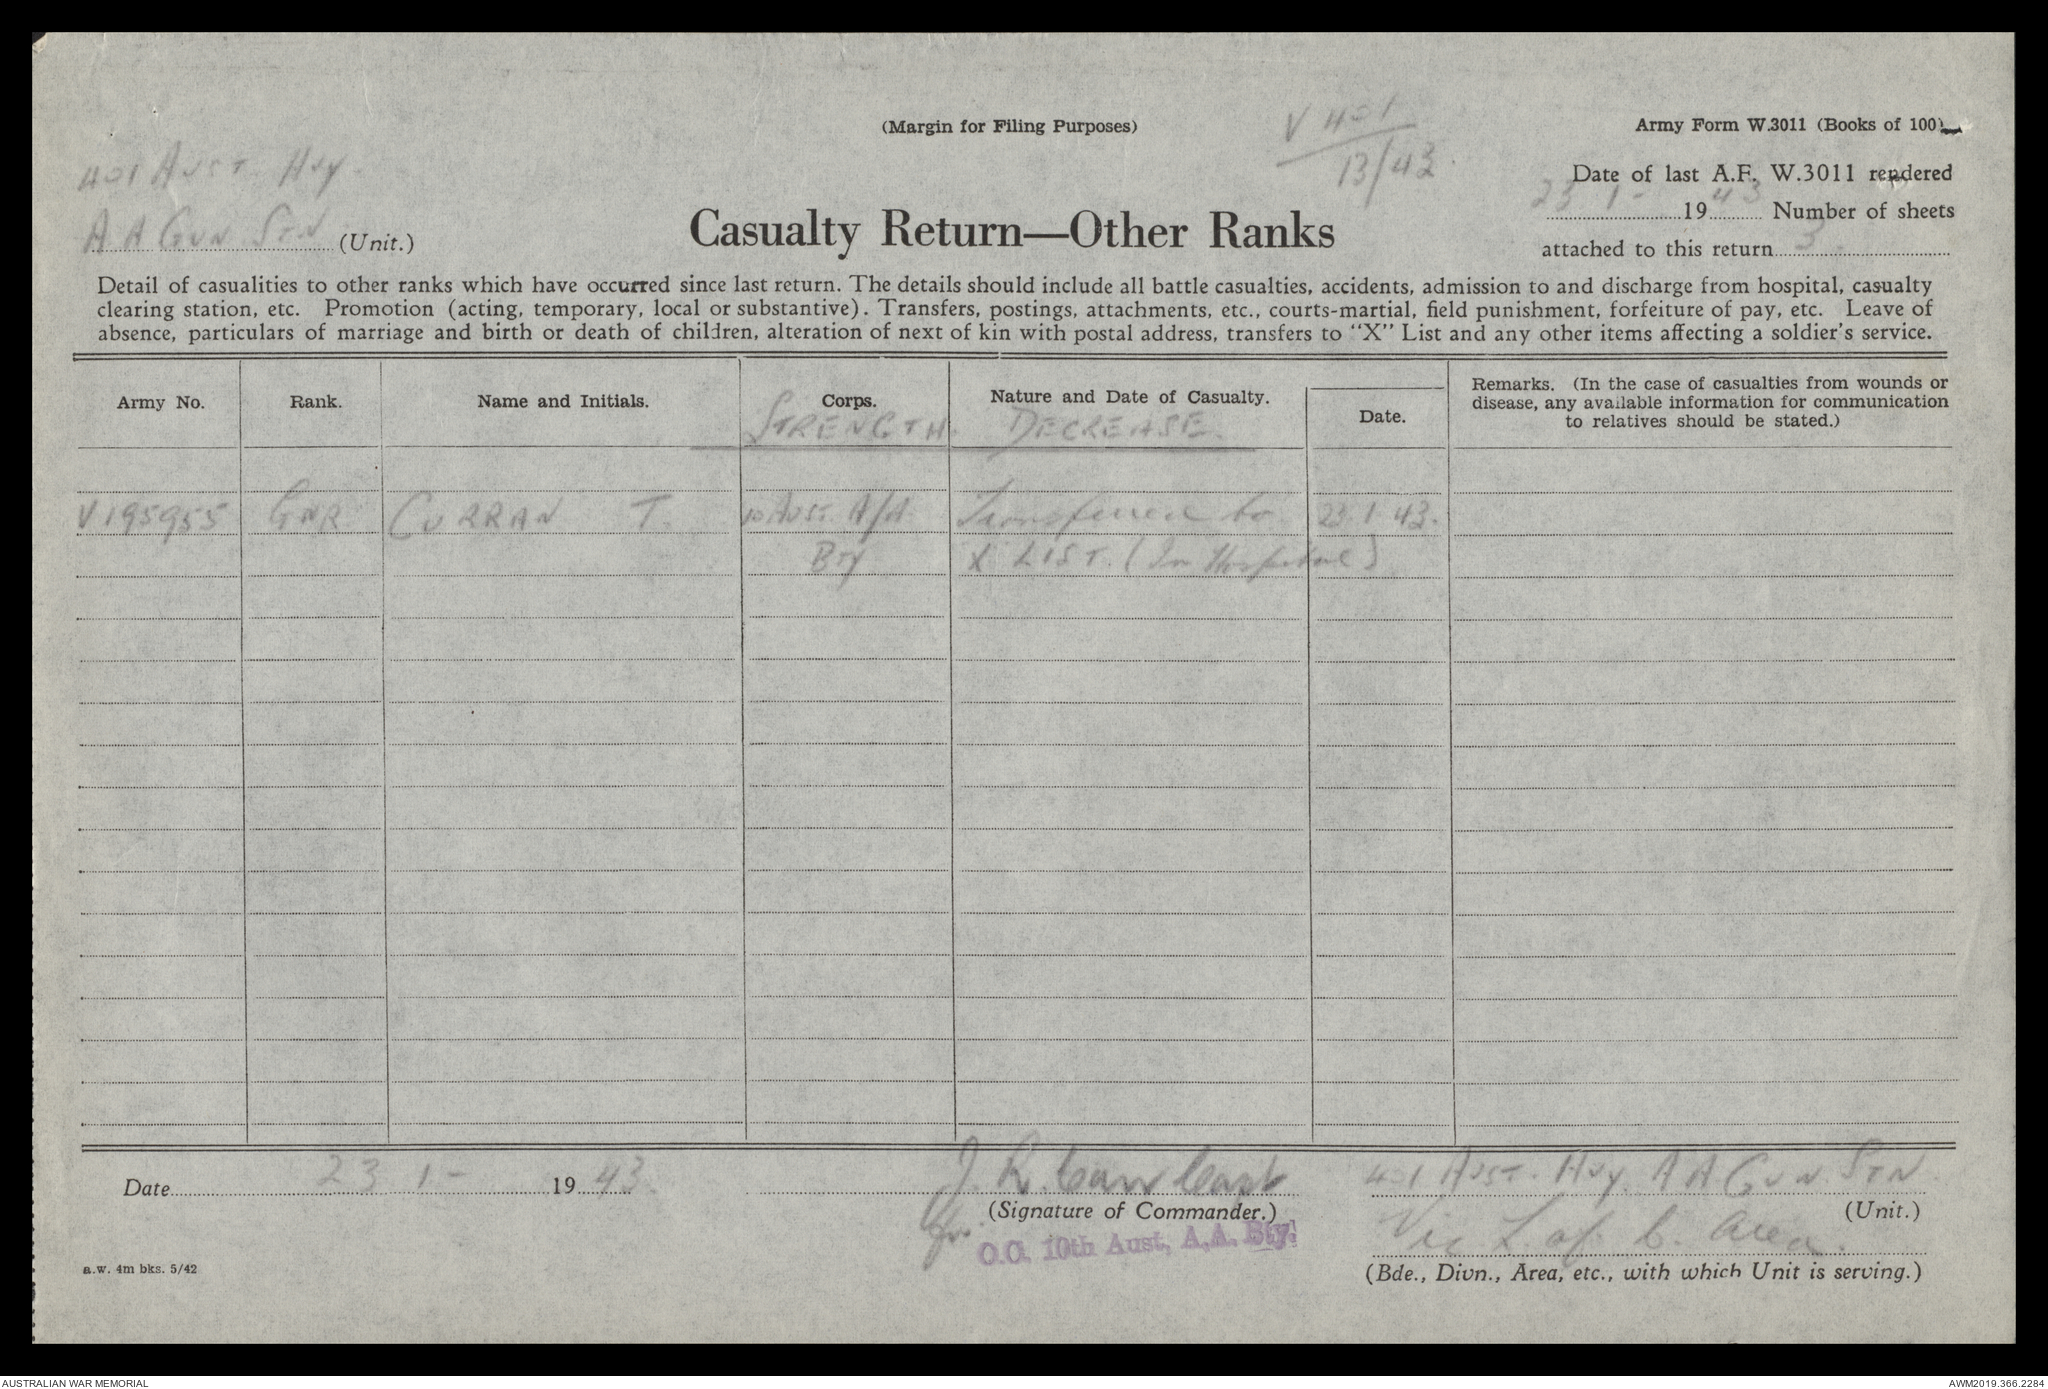 (Margin for Filing Purposes)
V 401
13/43
Army Form W.3011 (Books of 100)
401 AUST. HVY.
A A GUN STN (Unit.)
Casualty Return—Other Ranks
Date of last A.F. W.3011 rendered
23 1 - 1943 Number of sheets
attached to this return 3
Detail of casualities to other ranks which have occurred since last return. The details should include all battle casualties, accidents, admission to and discharge from hospital, casualty
clearing station, etc. Promotion (acting, temporary, local or substantive). Transfers, postings, attachments, etc., courts-martial, field punishment, forfeiture of pay, etc. Leave of
absence, particulars of marriage and birth or death of children, alteration of next of kin with postal address, transfers to "X" List and any other items affecting a soldier's service.
Army No. Rank. Name and Initials. Corps. Nature and Date of Casualty. Date. Remarks. (In the case of casualties from wounds or
disease, any available information for communication
to relatives should be stated.)
STRENGTH. DECREASE.
V195955 GNR CURRAN T. 10 AUST. A/A. Transferred to 23.1.43.
Bty X LIST. (In Hospital)
Date 23 1 - 1943. J. R. Carr Capt 401 AUST. HVY. A A GUN. STN.
(Signature of Commander.) (Unit.)
for O.C. 10th Aust. A.A. Bty. Vic L. of C. Area.
(Bde., Divn., Area, etc., with which Unit is serving.)
a.w. 4m bks. 5/42
AUSTRALIAN WAR MEMORIAL
AWM2019.366.2284